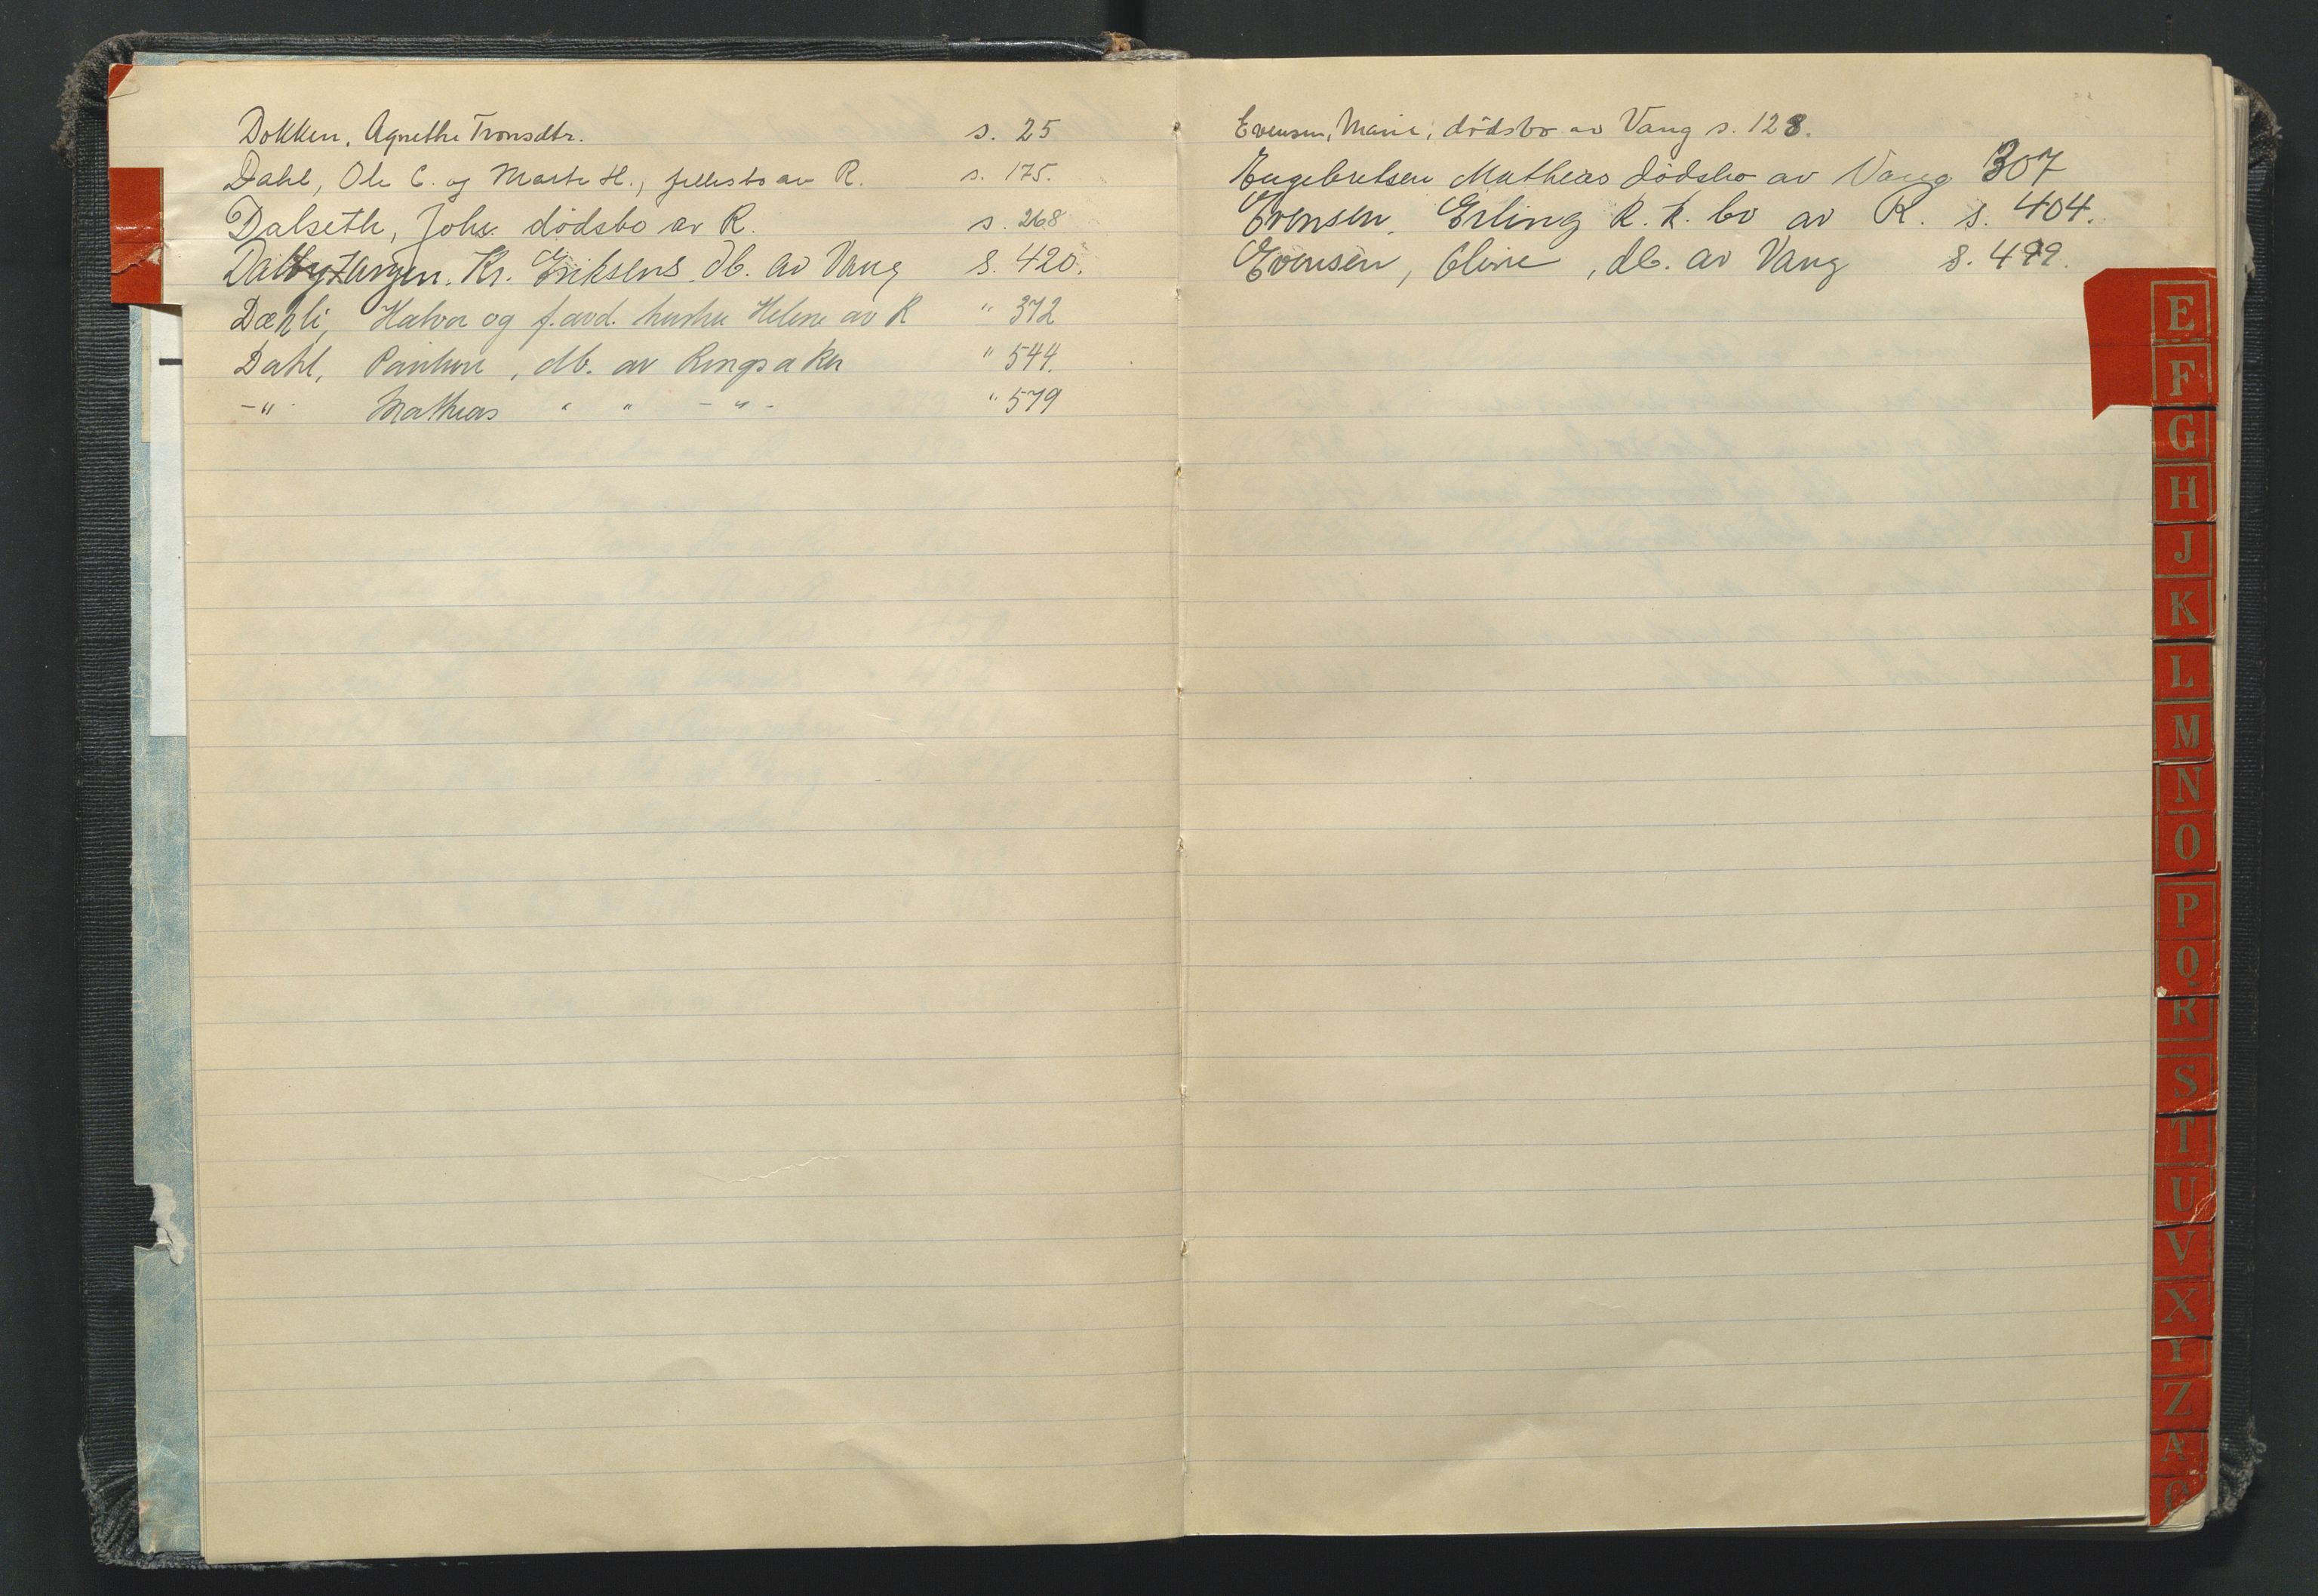 Dokken, Agnethe Tronsdtr. s. 25
Dahl, Ole C. og Marte H., fellesbo av R. s. 175.
Dalseth, Johs. dödsbo av R. s. 268
Kr. Eriksens db. av Vang s. 420.
Dæhli, Halvor og f.avd. hustru Helene av R " 372
Dahl, Pauline, db. av Ringsaker " 544.
-"- Mathias " " -"- " 579
Evensen, Marie, dödsbo av Vang s. 128.
Engebretsen Mathias dödsbo av Vang 307
Evensen, Erling R. k. bo av R. s. 404.
Evensen, Oline, db. av Vang s. 499.
E
F
G
H
J
K
L
M
N
O
P
Q
R
S
T
U
V
X
Y
Z